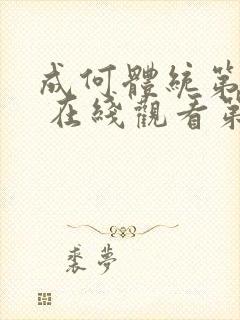 成何體統第
在綫觀看第
裘夢